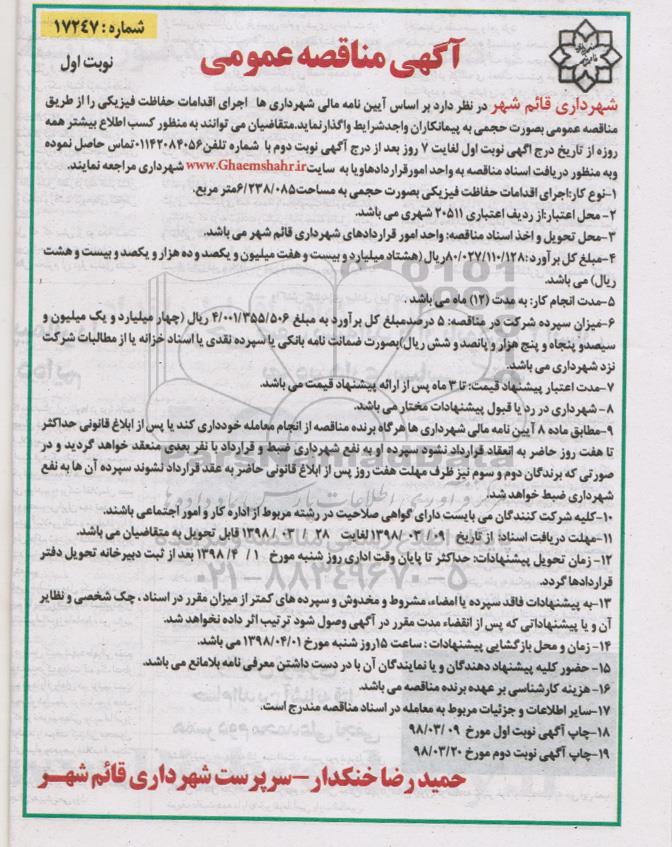 شماره: ۱۷۲۴۷
آگهی مناقصه عمومی
نوبت اول
شهرداری قائم شهر در نظر دارد بر اساس آیین نامه مالی شهرداری ها اجرای اقدامات حفاظت فیزیکی را از طریق
مناقصه عمومی بصورت حجمی به پیمانکاران واجدشرایط واگذارنماید.متقاضیان می توانند به منظور کسب اطلاع بیشتر همه
روزه از تاریخ درج اگهی نوبت اول لغایت ۷ روز بعد از درج آگهی نوبت دوم با شماره تلفن۰۱۱۴۲۰۸۴۰۵۶تماس حاصل نموده
وبه منظور دریافت اسناد مناقصه به واحد امورقراردادهاویا به سایتwww.Ghaemshahr.ir شهرداری مراجعه نمایند.
۱-نوع کار:اجرای اقدامات حفاظت فیزیکی بصورت حجمی به مساحت۶/۲۳۸/۰۸۵متر مربع.
۲- محل اعتبار:از ردیف اعتباری ۲۰۵۱۱ شهری می باشد.
۳-محل تحویل و اخذ اسناد مناقصه: واحد امور قراردادهای شهرداری قائم شهر می باشد.
۴-مبلغ کل برآورد:۸۰/۰۲۷/۱۱۰/۱۲۸ریال(هشتاد میلیارد و بیست و هفت میلیون و یکصد و ده هزار و یکصد و بیست و هشت
ریال) می باشد.
۵-مدت انجام کار: به مدت (۱۲) ماه می باشد .
۶-میزان سپرده شرکت در مناقصه: ۵ درصدمبلغ کل برآورد به مبلغ ۴/۰۰۱/۳۵۵/۵۰۶ ریال (چهار میلیارد و یک میلیون و
سیصدو پنجاه و پنج هزار و پانصد و شش ریال)بصورت ضمانت نامه بانکی یا سپرده نقدی یا اسناد خزانه یا از مطالبات شرکت
نزد شهرداری می باشد.
۷-مدت اعتبار پیشنهاد قیمت: تا ۳ ماه پس از ارائه پیشنهاد قیمت می باشد.
۸- شهرداری در رد یا قبول پیشنهادات مختار می باشد.
۹-مطابق ماده ۸ آیین نامه مالی شهرداری ها هرگاه برنده مناقصه از انجام معامله خودداری کند یا پس از ابلاغ قانونی حداکثر
تا هفت روز حاضر به انعقاد قرارداد نشود سپرده او به نفع شهرداری ضبط و قرارداد با نفر بعدی منعقد خواهد گردید و در
صورتی که برندگان دوم و سوم نیز ظرف مهلت هفت روز پس از ابلاغ قانونی حاضر به عقد قرارداد نشوند سپرده آن ها به نفع
شهرداری ضبط خواهد شد.
۱۰-کلیه شرکت کنندگان می بایست دارای گواهی صلاحیت در رشته مربوط از اداره کار و امور اجتماعی باشند.
۱۱-مهلت دریافت اسناد: از تاریخ ۰۹/ ۰۳/ ۱۳۹۸ لغایت ۲۸ / ۰۳ / ۱۳۹۸ قابل تحویل به متقاضیان می باشد.
۱۲- زمان تحویل پیشنهادات: حداکثر تا پایان وقت اداری روز شنبه مورخ ۱ / ۴ / ۱۳۹۸ بعد از ثبت دبیرخانه تحویل دفتر
قراردادها گردد.
۱۳-به پیشنهادات فاقد سپرده یا امضاء، مشروط و مخدوش و سپرده های کمتر از میزان مقرر در اسناد ، چک شخصی و نظایر
آن و یا پیشنهاداتی که پس از انقضاء مدت مقرر در آگهی وصول شود ترتیب اثر داده نخواهد شد.
۱۴- زمان و محل بازگشایی پیشنهادات : ساعت ۱۵روز شنبه مورخ ۱۳۹۸/۰۴/۰۱ می باشد.
۱۵- حضور کلیه پیشنهاد دهندگان و یا نمایندگان آن با در دست داشتن معرفی نامه بلامانع می باشد.
۱۶- هزینه کارشناسی بر عهده برنده مناقصه می باشد.
۱۷-سایر اطلاعات و جزئیات مربوط به معامله در اسناد مناقصه مندرج است.
۱۸-چاپ آگهی نوبت اول مورخ ۹۸/۰۳/۰۹
۱۹-چاپ آگهی نوبت دوم مورخ ۹۸/۰۳/۲۰
حمید رضا خنکدار-سرپرست شهرداری قائم شهر